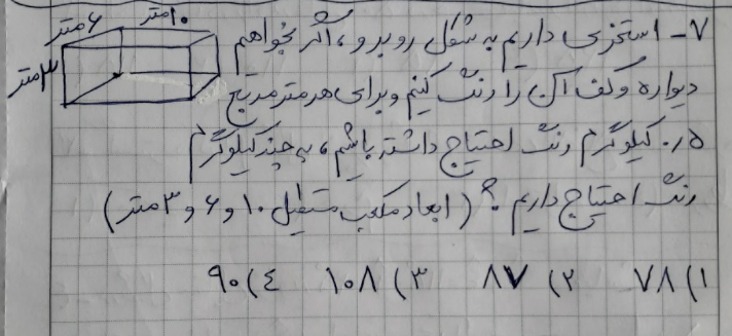 ۱۰متر
۶متر
۳متر
۷- استخری داریم به شکل روبرو، اگر بخواهیم
دیواره و کف آن را رنگ کنیم و برای هر متر مربع
۰٫۵ کیلوگرم رنگ احتیاج داشته باشیم، به چند کیلوگرم
رنگ احتیاج داریم؟ (ابعاد مکعب مستطیل ۱۰ و ۶ و ۳ متر)
۱) ۷۸ ۲) ۸۷ ۳) ۱۰۸ ۴) ۹۰